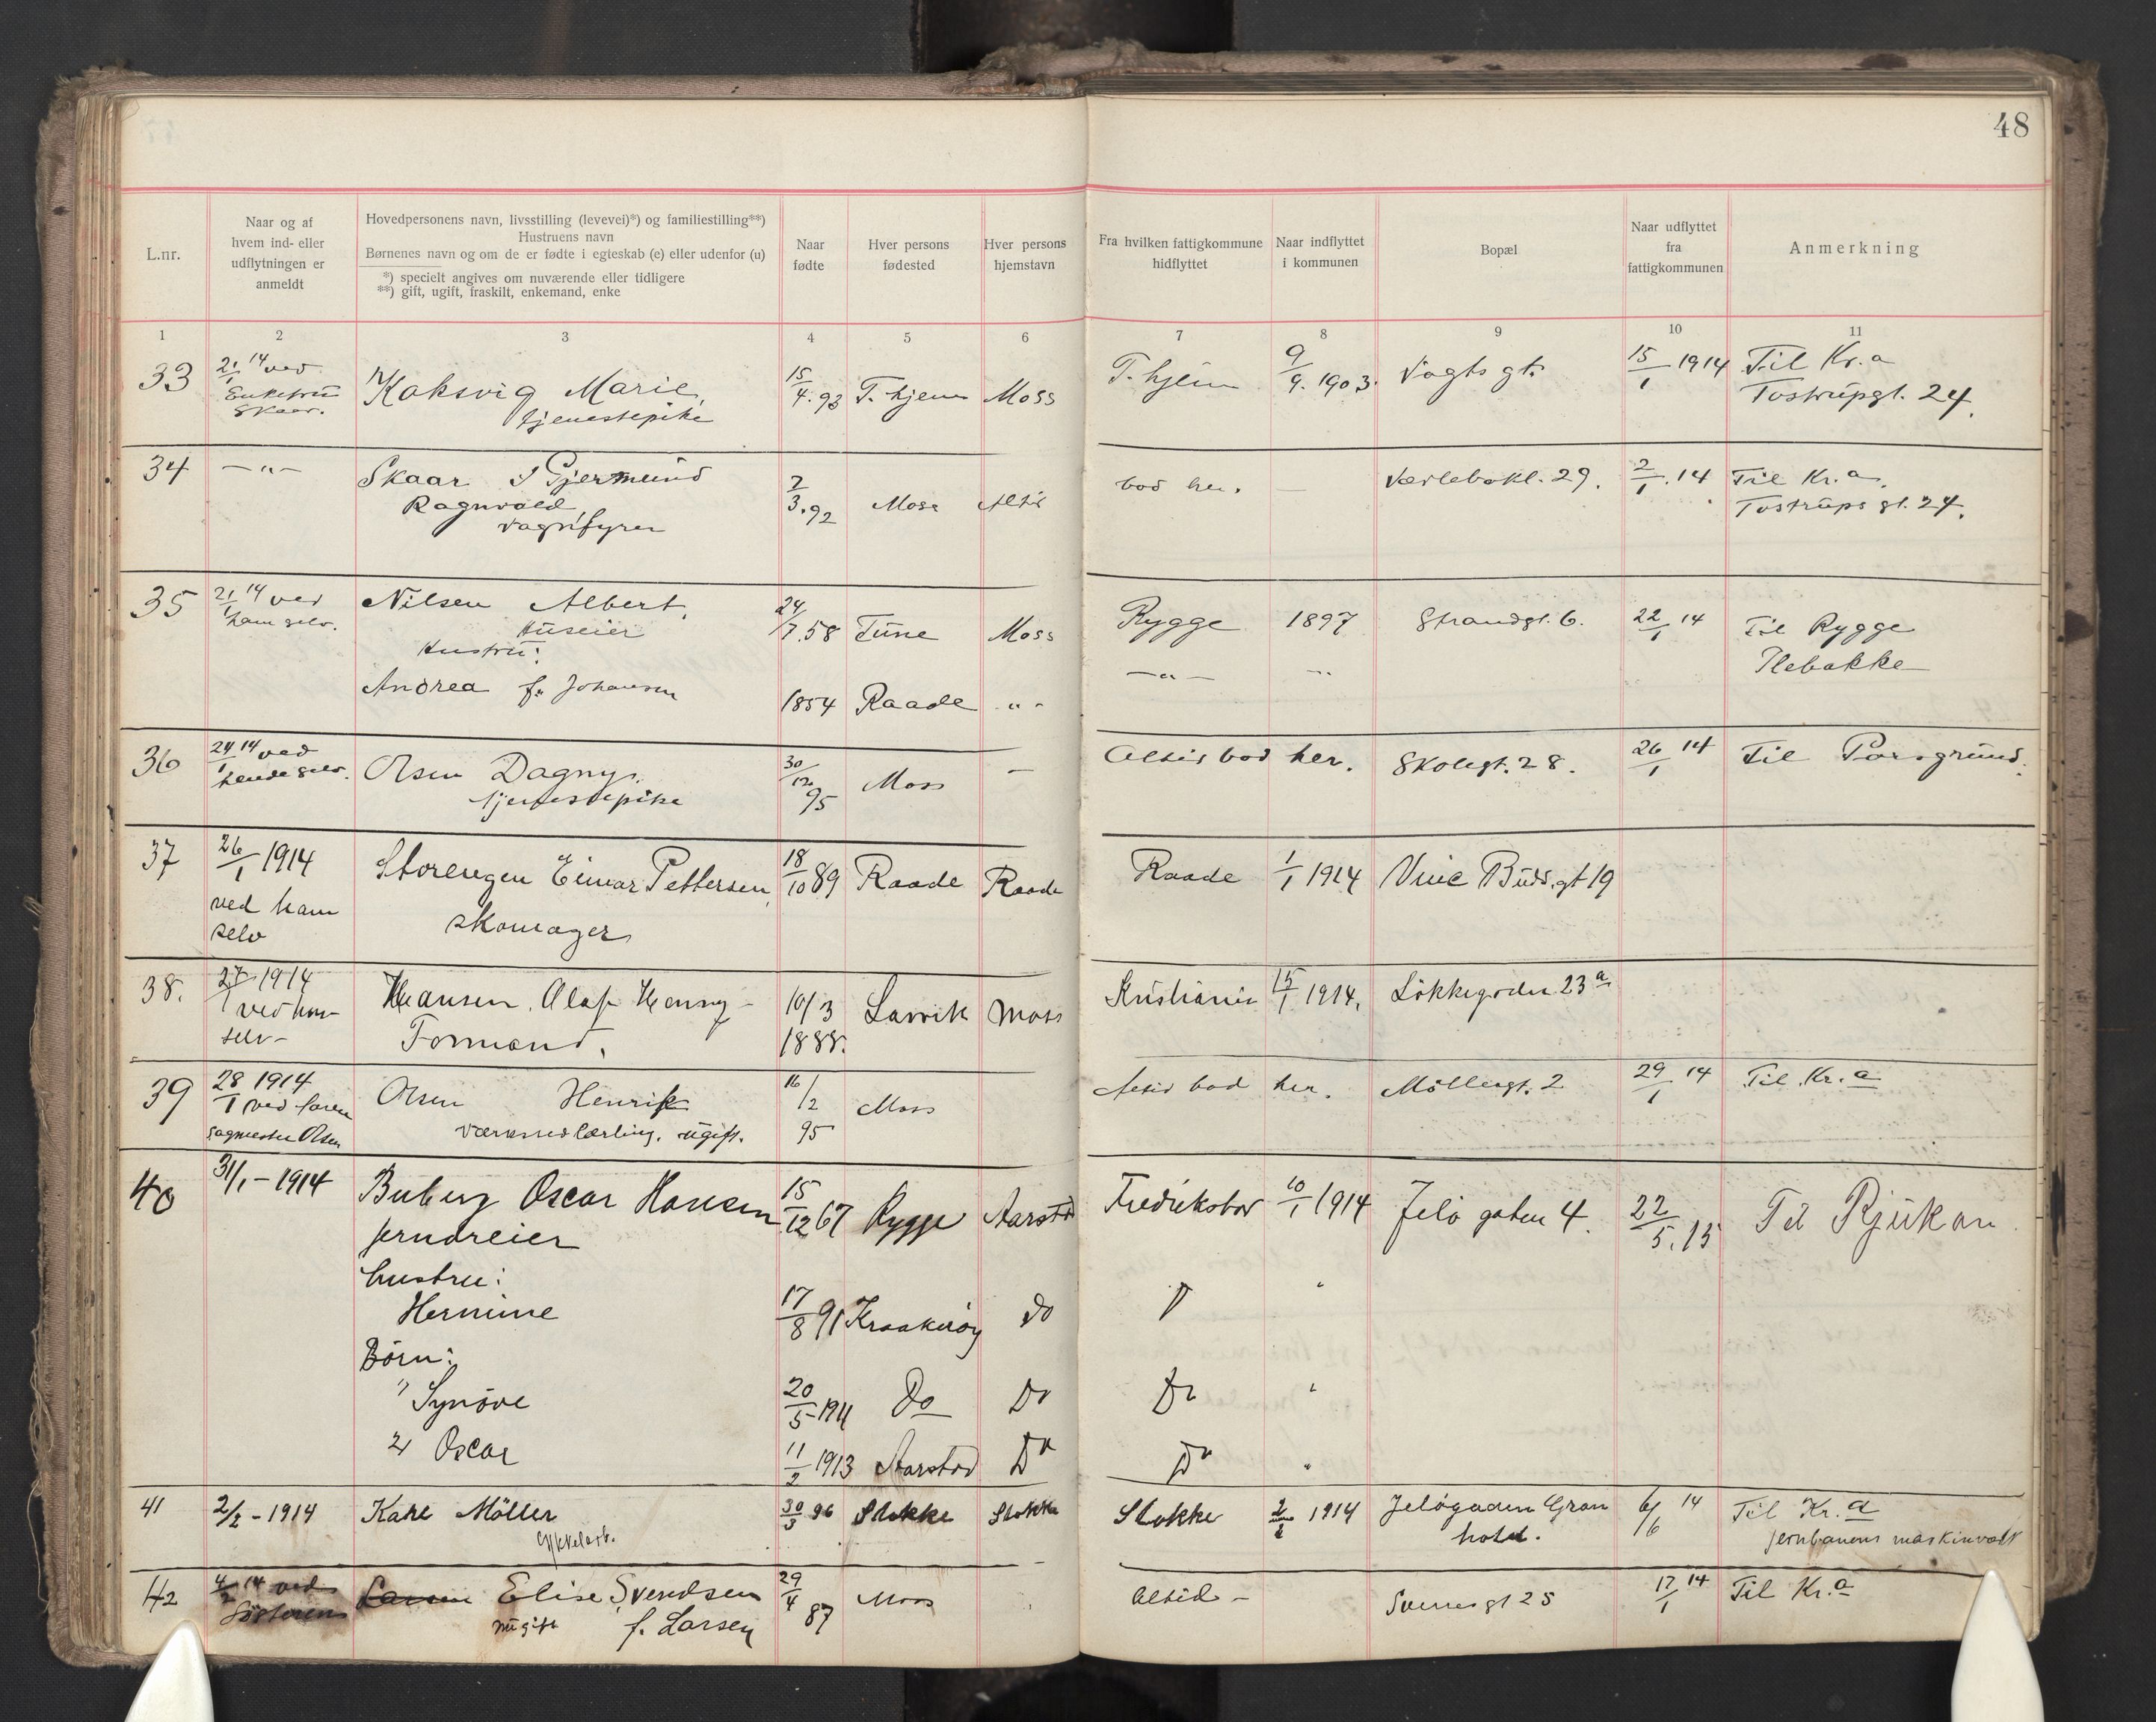 48
L.nr.
Naar og af
hvem ind- eller
udflytningen er
anmeldt
Hovedpersonens navn, livsstilling (levevei)*) og familiestilling**)
Hustruens navn
Børnenes navn og om de er fødte i egteskab (e) eller udenfor (u)
*) specielt angives om nuværende eller tidligere
**) gift, ugift, fraskilt, enkemand, enke
Naar
fødte
Hver persons
fødested
Hver persons
hjemstavn
Fra hvilken fattigkommune
hidflyttet
Naar indflyttet
i kommunen
Bopæl
Naar udflyttet
fra
fattigkommunen
Anmerkning
1 2 3 4 5 6 7 8 9 10 11
33 21/1 14 ved Koksvig Marie, 15/4.93 T.hjem Moss T.hjem 9/9.1903. Vogts gt. 15/1 1914 Til Kr.a
Enkefru Skaar. tjenestepike Tostrupgt. 24.
34 —"— Skaar Gjermund 2/3.92 Moss Altid bod her. — Værlebakl. 29. 2/1.14 Til Kr.a.
Ragnvald, Tostrups gt. 24.
vognfyrer
35 21/1 14 ved Nilsen Albert, 24/7.58 Tune Moss Rygge 1897 Strandgt. 6. 22/1 14 Til Rygge
ham selv. Huseier
Hustru: —"— Ilebakke
Andrea f. Johansen 1854 Raade " -
36 24/1 14 ved Olsen Dagny, 30/12 95 Moss — Altid bod her. Skolegt. 28. 26/1 14 Til Porsgrund.
hende selv. tjenestepike
37 26/1 1914 Storengen Einar Pettersen, 18/10 89 Raade Raade Raade 1/1 1914 Vinc Buds.gt 19
ved ham skomager
selv
38. 27/1 1914 Hansen, Olaf Henry - 10/3 Larvik Moss Kristiania 15/1 1914. Løkkegoden 23a
ved ham Formand. 1888.
selv -
39 28/1 1914 Olsen Henrik 16/2 95 Moss Altid bod her. Møllergt. 2 29/1 14 Til Kr.a
ved faren
sagmester Olsen ugift.
40 31/1 - 1914 Buberg Oscar Hansen 15/12 67 Rygge Aarstad Fredrikstad 10/1 1914 Jelø gaten 4. 22/5.15 Til Rjukan
jerndreier
hustru:
Hermine 17/8 91 Kraakerøy Do D "
Børn:
" Synøve 20/5 1911 Do Do Do "
2/ Oscar 11/2 1913 Aarstad Do Do "
41 2/2 - 1914 Kare Møller 30/3 96 Stokke Stokke Stokke 2/2 1914 Jeløgaden Gran 6/6 14 Til Kr.a
hold. jernbanens maskinvolt
42 4/2 14 ved Larsen Elise Svendsen 29/4 87 Moss Altid - Sverresgt 25 17/1 14 Til Kr.a
Søsteren nu gift f. Larsen